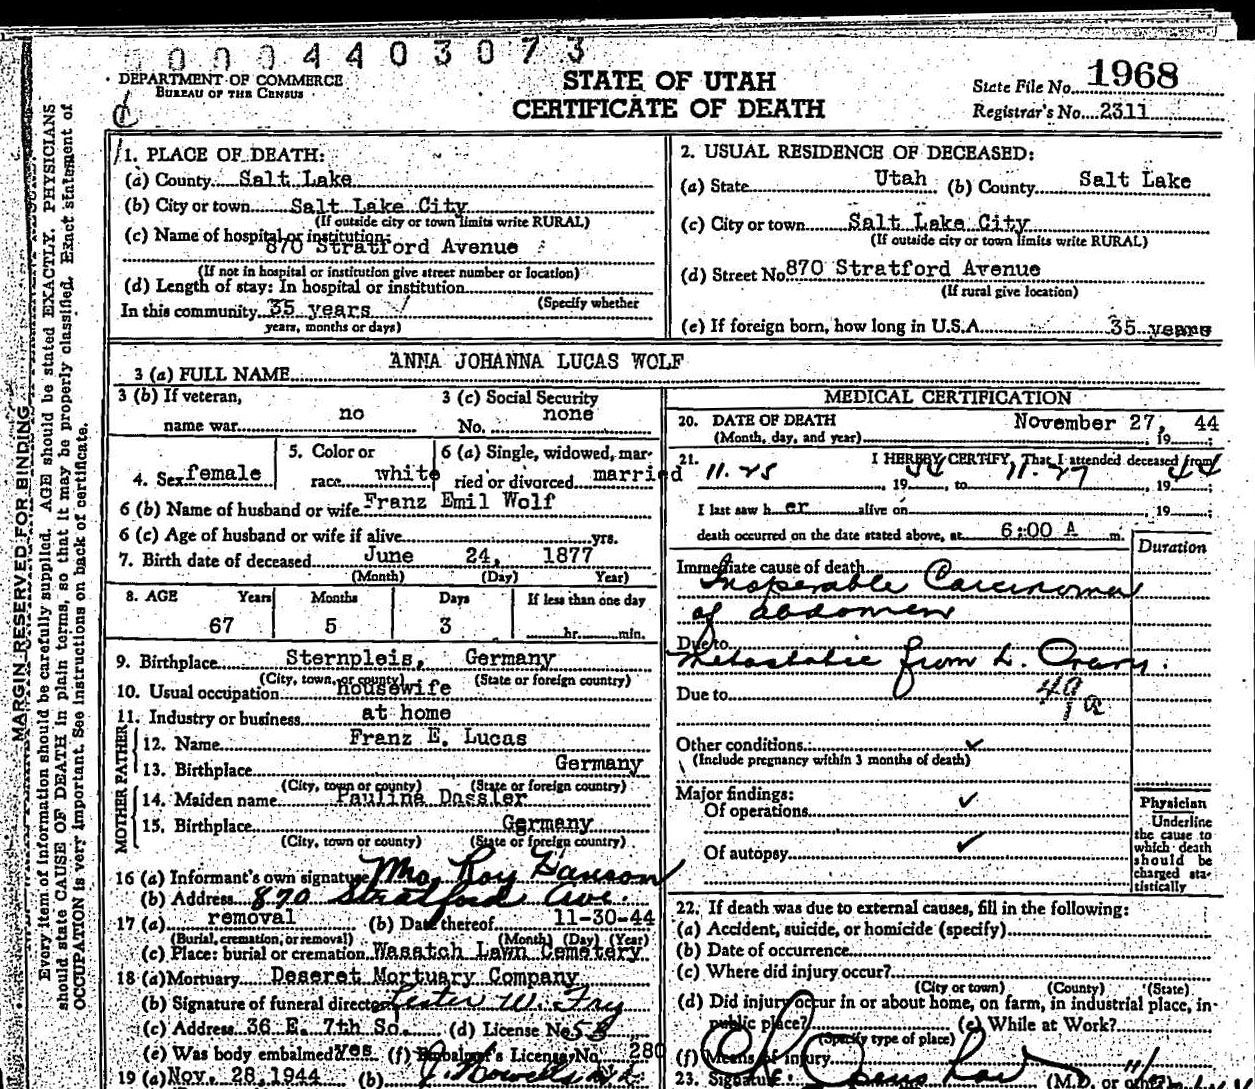 0004403073
DEPARTMENT OF COMMERCE
BUREAU OF THE CENSUS
STATE OF UTAH
CERTIFICATE OF DEATH
State File No. 1968
Registrar's No. 2311
MARGIN RESERVED FOR BINDING
Every item of information should be carefully supplied. AGE should be stated EXACTLY. PHYSICIANS
should state CAUSE OF DEATH in plain terms, so that it may be properly classified. Exact statement of
OCCUPATION is very important. See instructions on back of certificate.
1. PLACE OF DEATH:
(a) County Salt Lake
(b) City or town Salt Lake City
(If outside city or town limits write RURAL)
(c) Name of hospital or institution:
870 Stratford Avenue
(If not in hospital or institution give street number or location)
(d) Length of stay: In hospital or institution
(Specify whether
In this community 35 years
years, months or days)
2. USUAL RESIDENCE OF DECEASED:
(a) State Utah (b) County Salt Lake
(c) City or town Salt Lake City
(If outside city or town limits write RURAL)
(d) Street No. 870 Stratford Avenue
(If rural give location)
(e) If foreign born, how long in U.S.A. 35 years
3 (a) FULL NAME ANNA JOHANNA LUCAS WOLF
3 (b) If veteran,
name war no
3 (c) Social Security
No. none
4. Sex female
5. Color or
race white
6 (a) Single, widowed, mar-
ried or divorced married
6 (b) Name of husband or wife Franz Emil Wolf
6 (c) Age of husband or wife if alive yrs.
7. Birth date of deceased June 24, 1877
(Month) (Day) Year)
8. AGE Years Months Days If less than one day
67 5 3 hr. min.
9. Birthplace Sternpleis, Germany
(City, town, or county) (State or foreign country)
10. Usual occupation housewife
11. Industry or business at home
FATHER
12. Name Franz E. Lucas
13. Birthplace Germany
(City, town or county) (State or foreign country)
MOTHER
14. Maiden name Pauline Dassler
15. Birthplace Germany
(City, town or county) (State or foreign country)
16 (a) Informant's own signature Mrs. Roy Hanson
(b) Address 870 Stratford Ave.
17 (a) removal (b) Date thereof 11-30-44
(Burial, cremation, or removal) (Month) (Day) (Year)
(c) Place: burial or cremation Wasatch Lawn Cemetery
18 (a) Mortuary Deseret Mortuary Company
(b) Signature of funeral director Lester W. Fry
(c) Address 36 E. 7th So. (d) License No. 58
(e) Was body embalmed? Yes (f) Embalmer's License No. 280
19 (a) Nov. 28, 1944 (b)
MEDICAL CERTIFICATION
20. DATE OF DEATH November 27, 44
(Month, day, and year) 19 ;
21. I HEREBY CERTIFY, That I attended deceased from
11-25, 19 44, to 11-27, 19 44;
I last saw her alive on 19 ;
death occurred on the date stated above, at 6:00 A m.
Duration
Immediate cause of death
Inoperable Carcinoma
of abdomen
Due to
Metastatic from L. Ovary.
Due to 49 a
Other conditions: ✓
(Include pregnancy within 3 months of death)
Major findings:
Of operations ✓
Of autopsy ✓
Physician
Underline
the cause to
which death
should be
charged sta-
tistically
22. If death was due to external causes, fill in the following:
(a) Accident, suicide, or homicide (specify)
(b) Date of occurrence
(c) Where did injury occur?
(City or town) (County) (State)
(d) Did injury occur in or about home, on farm, in industrial place, in
public place? (e) While at Work?
(Specify type of place)
(f) Means of injury
23. Signature (M.D. or